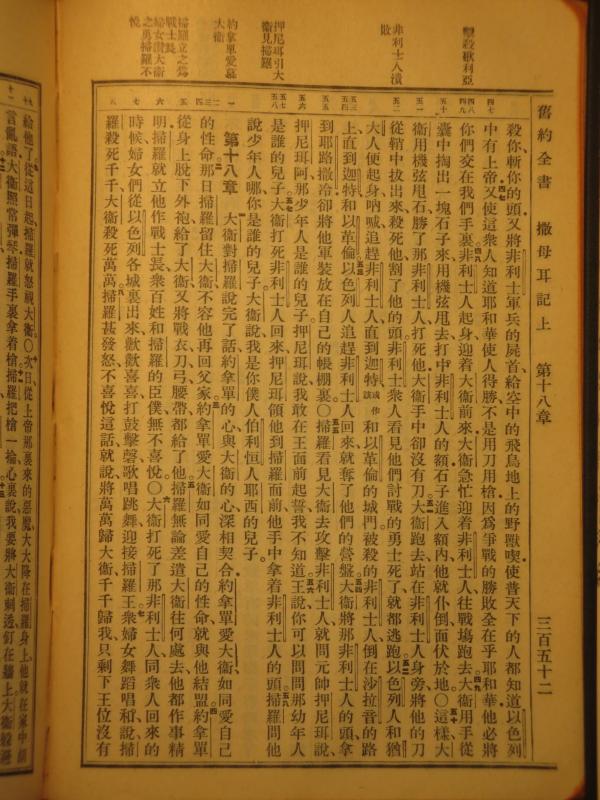 舊約全書 撒母耳記上 第十八章 三百五十二
擊殺歌利亞
非利士人潰敗
押尼珥引大衛見掃羅
約拿單愛慕大衛
掃羅立之為戰士長
婦女讚大衛之勇掃羅不悅
殺你斬你的頭又將非利士軍兵的屍首給空中的飛鳥地上的野獸喫使普天下的人都知道以色列
中有上帝又使這衆人知道耶和華使人得勝不是用刀用槍因爲爭戰的勝敗全在乎耶和華他必將
你們交在我們手裏非利士人起身迎着大衛前來大衛急忙迎着非利士人往戰場跑去大衛用手從
囊中掏出一塊石子來用機弦甩去打中非利士人的額石子進入額內他就仆倒面伏於地〇這樣大
衛用機弦甩石勝了那非利士人打死他大衛手中卻沒有刀大衛跑去站在非利士人身旁將他的刀
從鞘中拔出來殺死他割了他的頭非利士衆人看見他們討戰的勇士死了就都逃跑以色列人和猶
大人便起身吶喊追趕非利士人直到迦特或作該和以革倫的城門被殺的非利士人倒在沙拉音的路
上直到迦特和以革倫以色列人追趕非利士人回來就奪了他們的營盤大衛將那非利士人的頭拿
到耶路撒冷卻將他軍裝放在自己的帳棚裏〇掃羅看見大衛去攻擊非利士人就問元帥押尼珥說
押尼珥阿那少年人是誰的兒子押尼珥說我敢在王面前起誓我不知道王說你可以問問那幼年人
是誰的兒子大衛打死非利士人回來押尼珥領他到掃羅面前他手中拿着非利士人的頭掃羅問他
說少年人哪你是誰的兒子大衛說我是你僕人伯利恒人耶西的兒子
第十八章 大衛對掃羅說完了話約拿單的心與大衛的心深相契合約拿單愛大衛如同愛自己
的性命那日掃羅留住大衛不容他再回父家約拿單愛大衛如同愛自己的性命就與他結盟約拿單
從身上脫下外袍給了大衛又將戰衣刀弓腰帶都給了他掃羅無論差遣大衛往何處去他都作事精
明掃羅就立他作戰士長衆百姓和掃羅的臣僕無不喜悅〇大衛打死了那非利士人同衆人回來的
時候婦女們從以色列各城裏出來歡歡喜喜打鼓擊磬歌唱跳舞迎接掃羅王衆婦女舞蹈唱和說掃
羅殺死千千大衛殺死萬萬掃羅甚發怒不喜悅這話就說將萬萬歸大衛千千歸我只剩下王位沒有
給他了從這日起掃羅就怒視大衛〇次日從上帝那裏來的惡魔大大降在掃羅身上他就在家中胡
言亂語大衛照常彈琴掃羅手裏拿着槍掃羅把槍一掄心裏說我要將大衛刺透釘在牆上大衛躲避